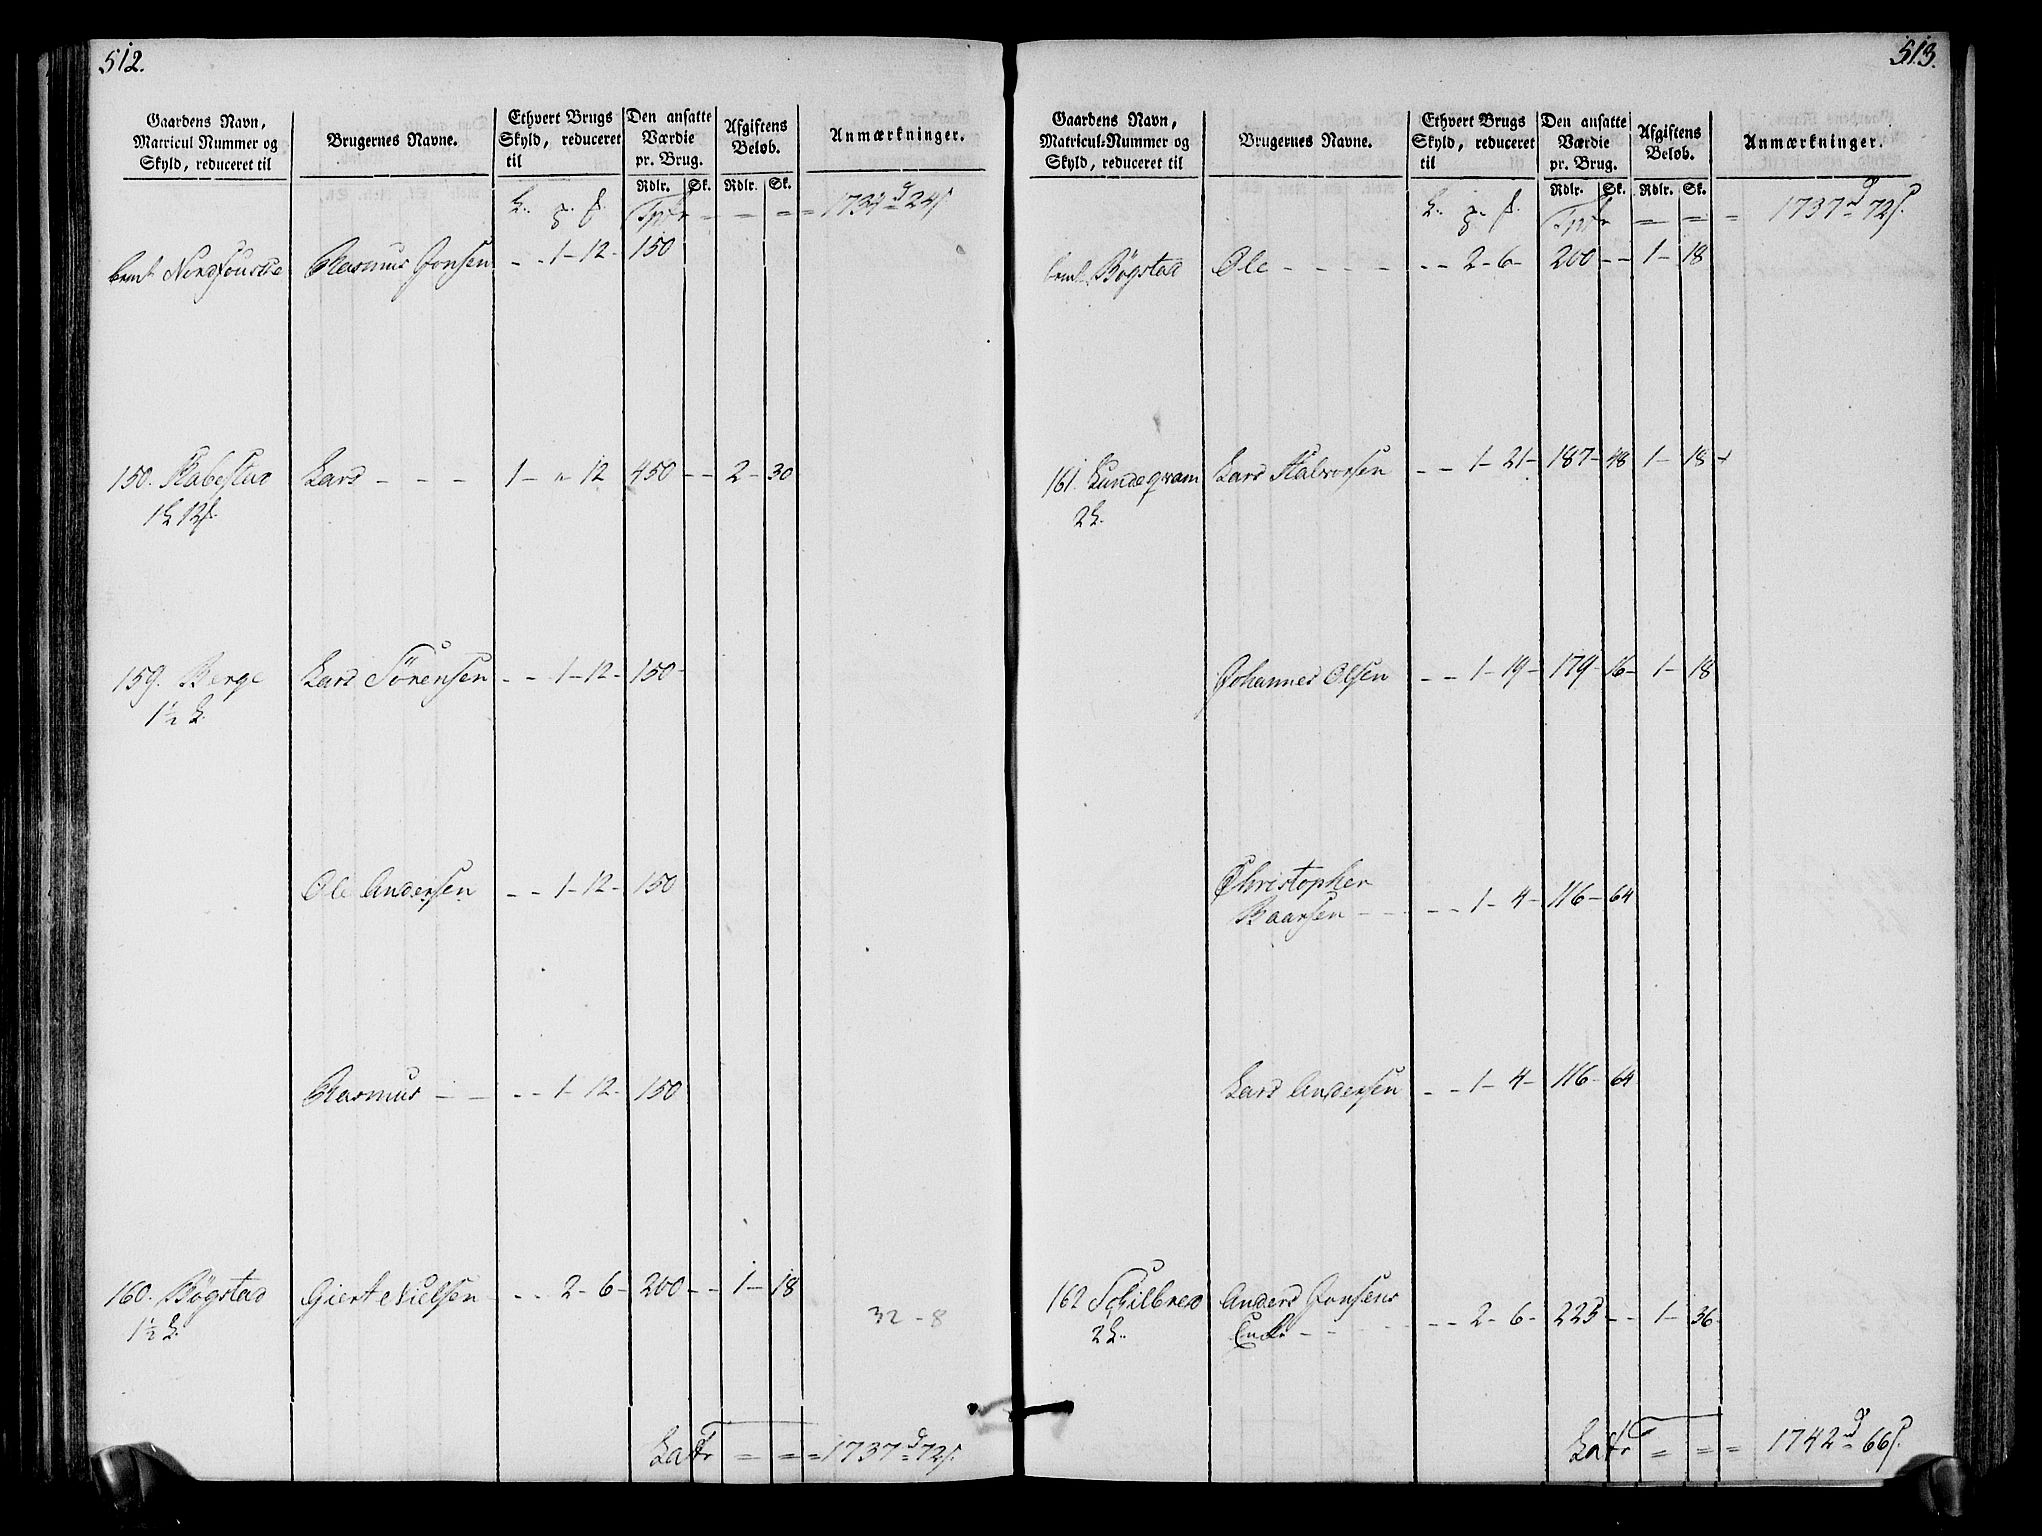 512.
Gaardens Navn, Matricul Nummer og Skyld, reduceret til
Brugernes Navne.
Ethvert Brugs Skyld, reduceret til
Den ansatte Værdie pr. Brug.
Afgiftens Beløb.
Anmærkninger.
Rdlr. Sk. Rdlr. Sk.
Tpfr = = = = 1734 d 24 s.
Rasmus Jonsen - - 1 - 12 - 150
150. Lars - - - 1 - " - 12 450 - - 2 - 30
159. Berge Lars Sörensen - - 1 - 12 - 150 -
1½
Ole Andersen - - 1 - 12 - 150
Rasmus - - - - 1 - 12 - 150
160. Bögstad Gierte Nielsen - - 2 - 6 - 200 - - 1 - 18
1½
32 - 8
Latr = = = 1737 d 72 s.
513.
Gaardens Navn, Matricul-Nummer og Skyld, reduceret til
Brugernes Navne.
Ethvert Brugs Skyld, reduceret til
Den ansatte Værdie pr. Brug.
Afgiftens Beløb.
Anmærkninger.
Rdlr. Sk. Rdlr. Sk.
Tpfr = = = 1737 d 72 s.
Bögstad Ole - - - - - - 2 - 6 - 200 - - 1 - 18
161. Lundeqvam Lars Halvorsen - - 1 - 21 - 187 - 48 1 - 18 +
2
Johannes Olsen - - 1 - 19 - 179 - 16 - 1 - 18
Christopher
Baarsen - - - - 1 - 4 - 116 - 64
Lars Andersen - - 1 - 4 - 116 - 64
162 Schilbred Anders Jonsens
2 Enke - - - - - 2 - 6 - 225 - - 1 - 36
Latr = = = 1742 d 66 s.